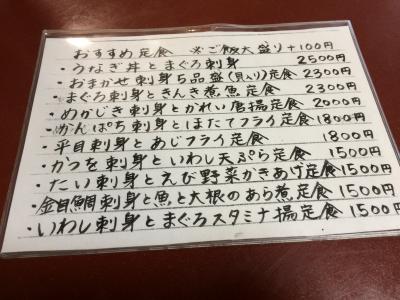 おすすめ定食 ※ご飯大盛り+100円
・うなぎ丼とまぐろ刺身 2500円
・おまかせ刺身5品盛(貝入り)定食 2300円
・まぐろ刺身ときんき煮魚定食 2300円
・めかじき刺身とかれい唐揚定食 2000円
・がんぱち刺身とほたてフライ定食 1800円
・平目刺身とあじフライ定食 1800円
・かつを刺身といわし天ぷら定食 1500円
・たい刺身とえび野菜かきあげ定食 1500円
・金目鯛刺身と魚と大根のあら煮定食 1500円
・いわし刺身とまぐろスタミナ揚定食 1500円